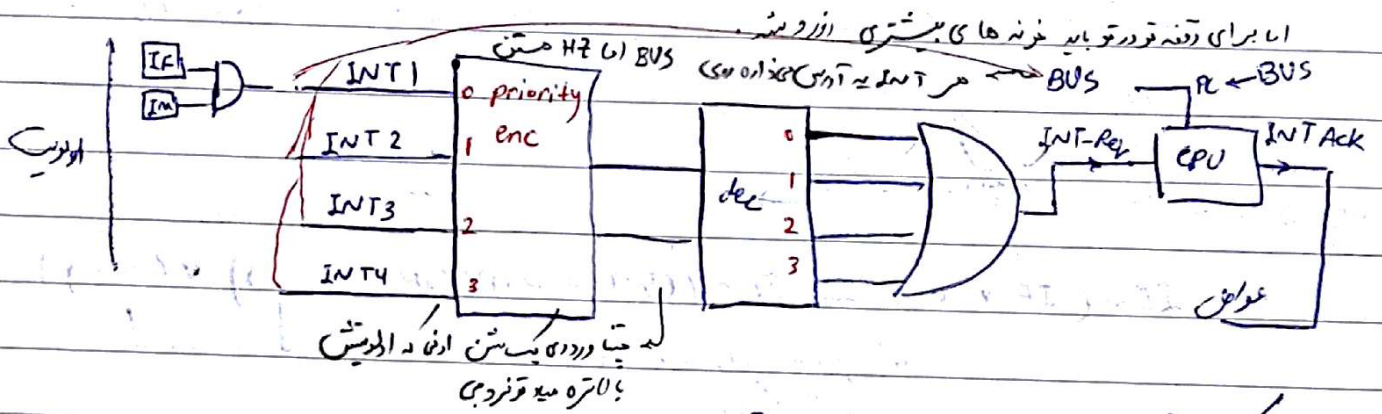 اما برای وقفه تو در تو باید خونه های بیشتری رزرو بشه.
BUS اما HZ هستن
هر INT یه آدرسی میذاره روی BUS
PC ← BUS
IF
IM
اولویت
INT1
INT2
INT3
INT4
0 priority
1 enc
2
3
dec
0
1
2
3
INT-Req
CPU
INT Ack
چنتا ورودی یک شن اونی که اولویتش
بالاتره میره تو خروجی